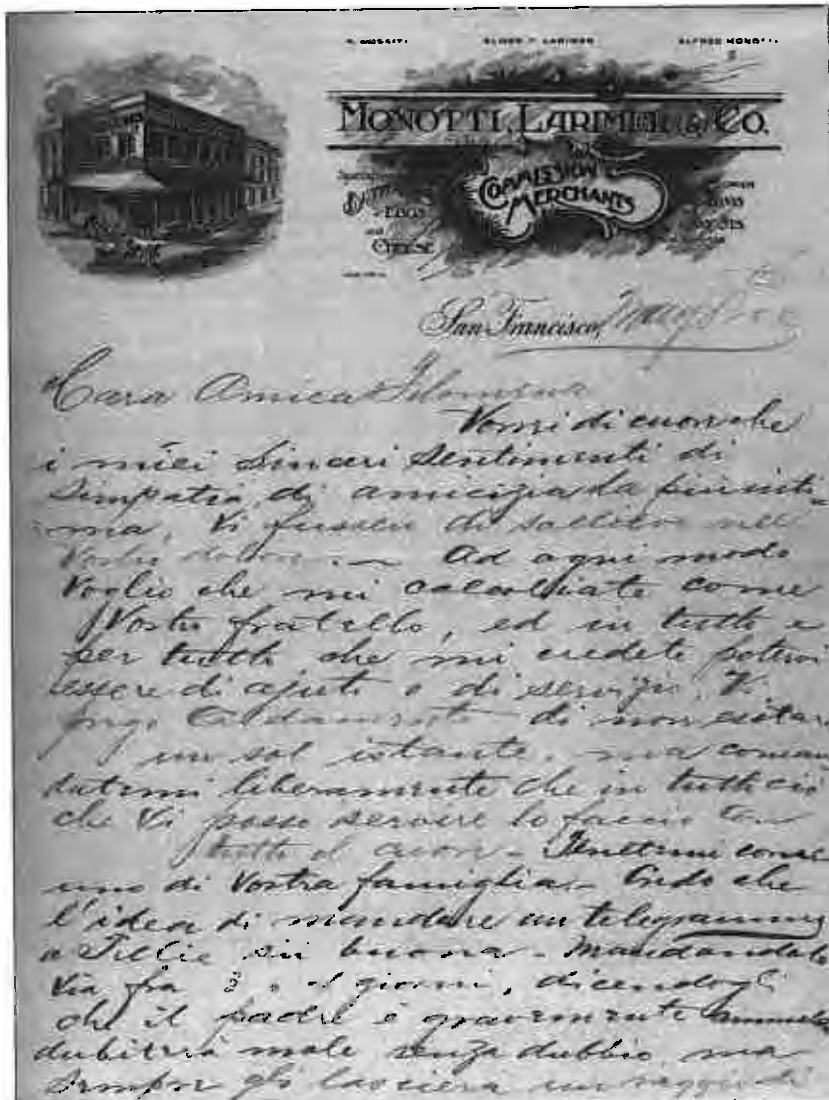 ALFRED MONOTTI
MONOTTI, LARIMER & CO.
COMMISSION MERCHANTS
EGGS
AND
CHEESE
San Francisco, May
Cara Amica Filomena
Vorrei di cuore che
i miei sinceri sentimenti di
simpatia, di amicizia la più inti-
ma, Vi fussero di sollievo nel
Vostro dolore. — Ad ogni modo
Voglio che mi calcoliate come
Vostro fratello, ed in tutto e
per tutto che mi credete potervi
essere di ajuto o di servizio, Vi
prego caldamente di non esitare
un sol istante, ma coman
datemi liberamente che in tutto ciò
che Vi posso servire lo faccio con
tutto il cuore — Tenetemi come
uno di Vostra famiglia. — Credo che
l'idea di mandare un telegramma
a Tillie sii buona — Mandandolo
via fra giorni, dicendogli
che il padre è gravemente
male senza dubbio, ma
sempre gli lasciera un raggio di